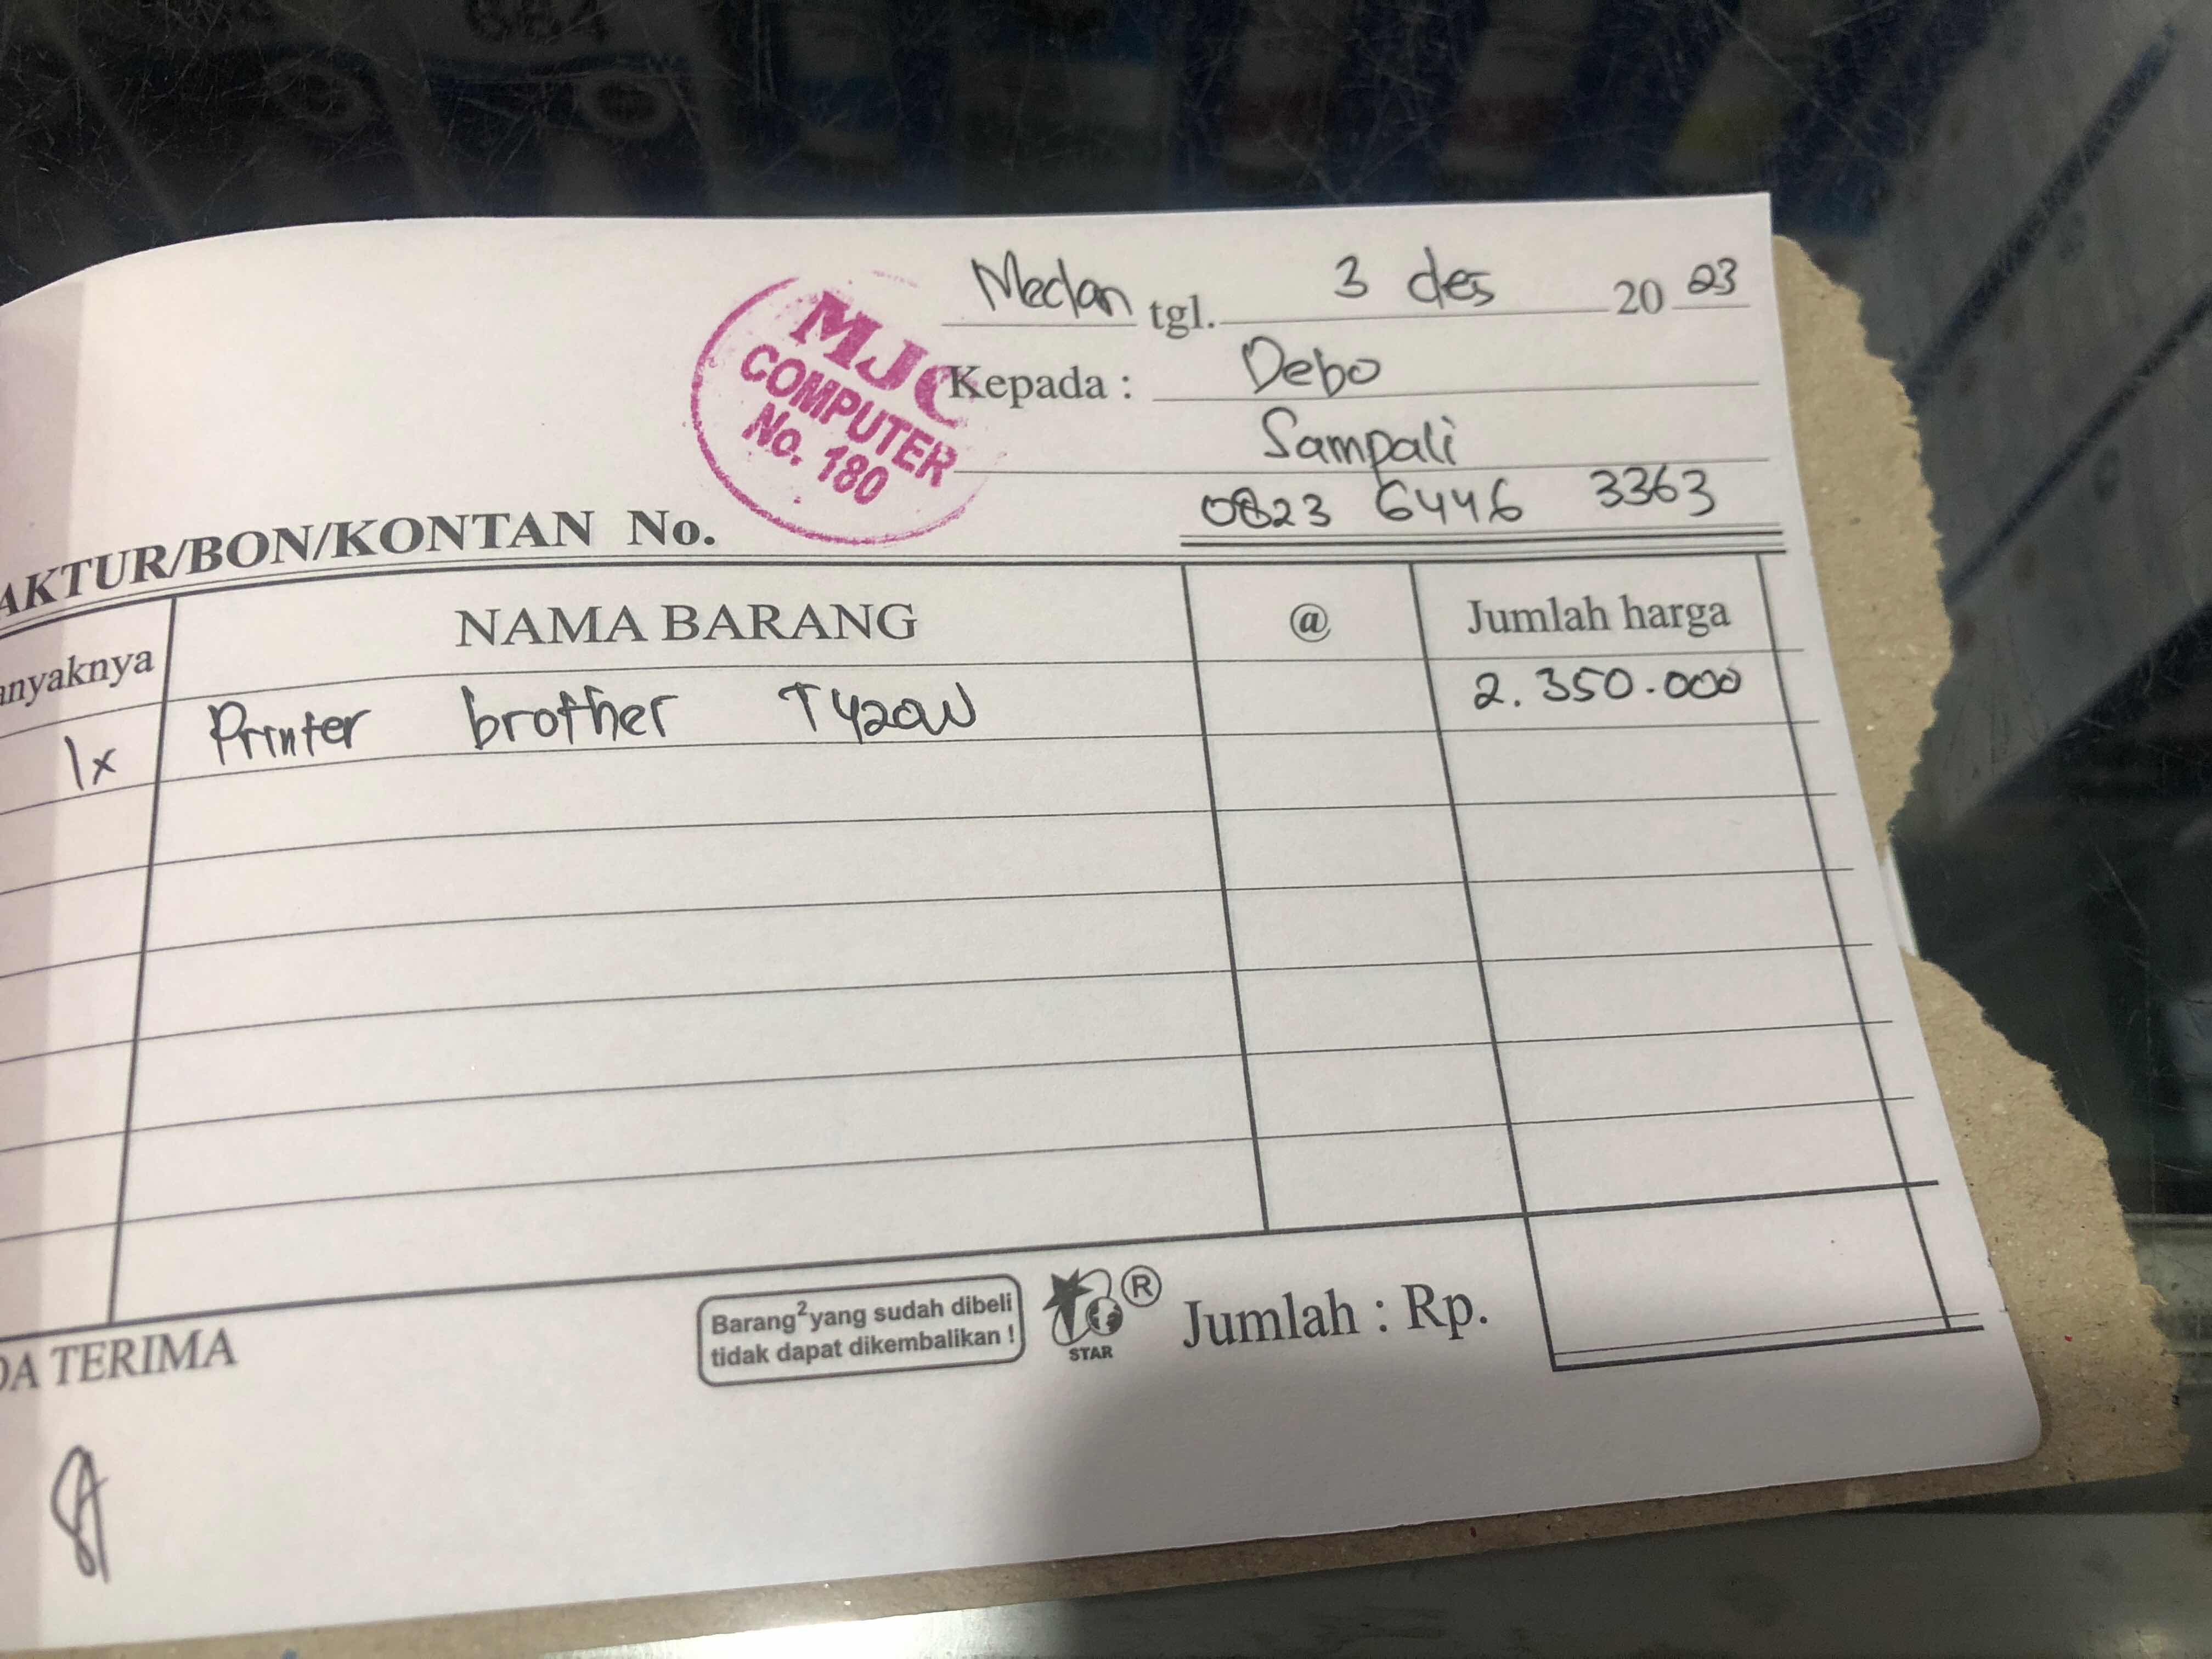 Medan tgl. 3 des 20 23
MJC
COMPUTER
No. 180
Kepada : Debo
Sampali
0823 6446 3363
AKTUR/BON/KONTAN No.
anyaknya NAMA BARANG @ Jumlah harga
1x Printer brother T420W 2.350.000
DA TERIMA
Barang2 yang sudah dibeli
tidak dapat dikembalikan !
STAR
®
Jumlah : Rp.